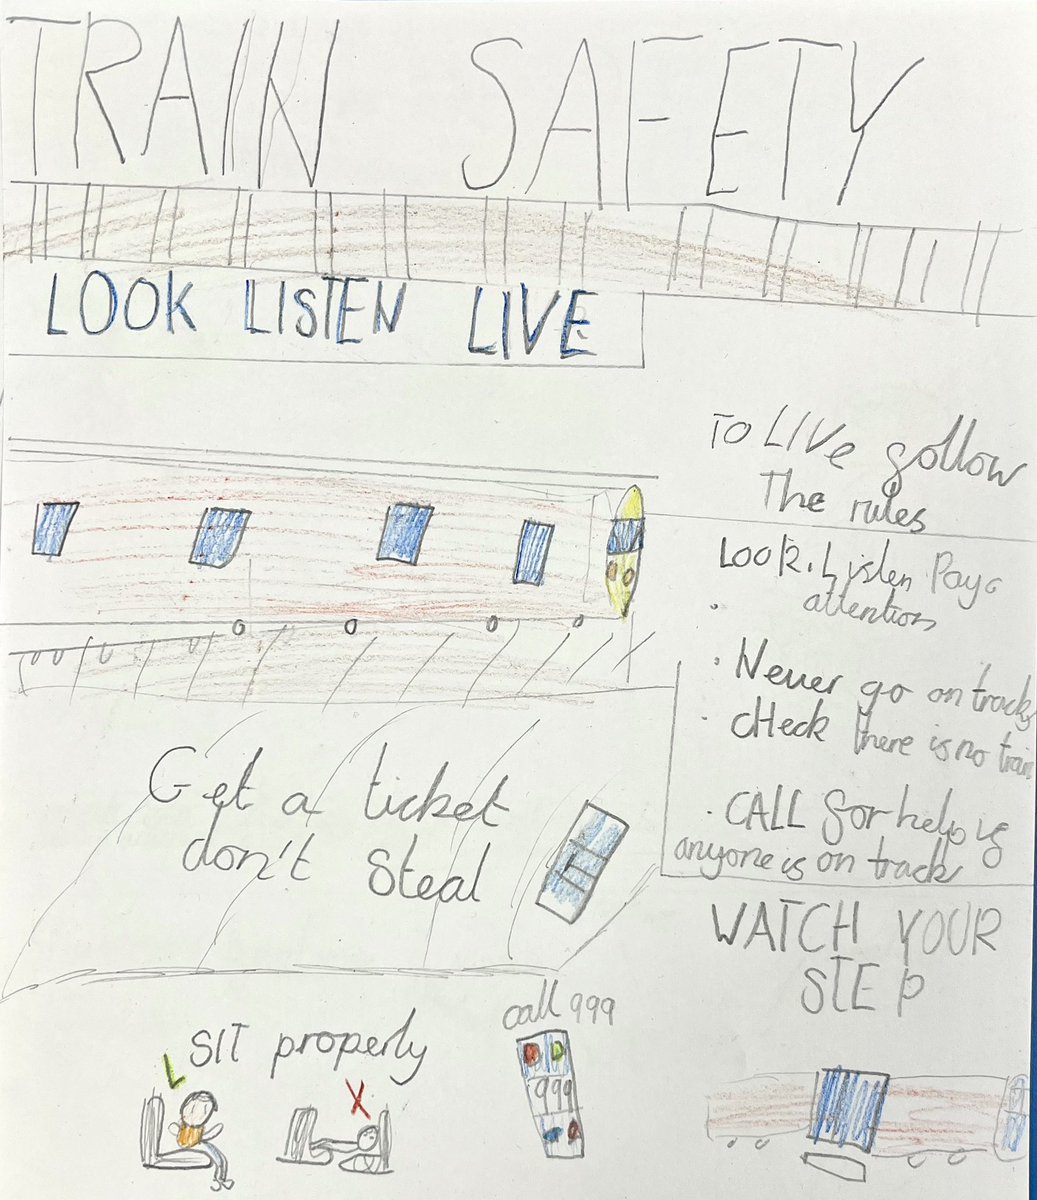 TRAIN SAFETY
LOOK LISTEN LIVE
TO LIVE follow
The rules
LOOK. Listen Pay
attention
· Never go on tracks
· cHeck there is no train
· CALL for help if
anyone is on track
Get a ticket
don't steal
WATCH YOUR
STEP
call 999
999
SIT properly